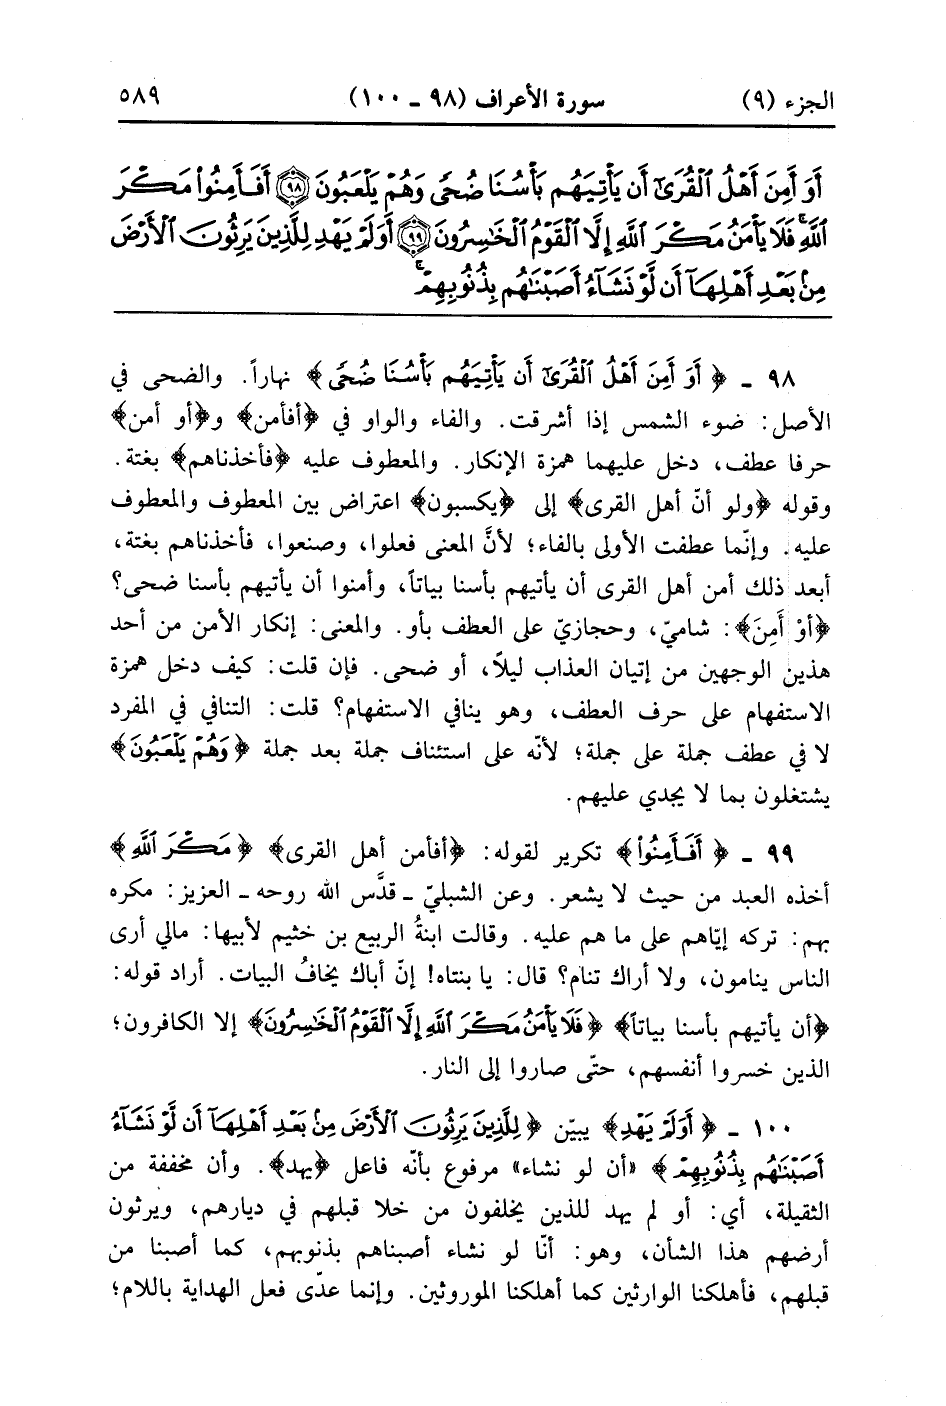 الجزء (٩) سورة الأعراف (٩٨ ـ ١٠٠) ٥٨٩
أَوَ أَمِنَ أَهْلُ ٱلْقُرَىٰٓ أَن يَأْتِيَهُم بَأْسُنَا ضُحًى وَهُمْ يَلْعَبُونَ ﴿٩٨﴾ أَفَأَمِنُوا۟ مَكْرَ
ٱللَّهِ ۚ فَلَا يَأْمَنُ مَكْرَ ٱللَّهِ إِلَّا ٱلْقَوْمُ ٱلْخَـٰسِرُونَ ﴿٩٩﴾ أَوَلَمْ يَهْدِ لِلَّذِينَ يَرِثُونَ ٱلْأَرْضَ
مِنۢ بَعْدِ أَهْلِهَآ أَن لَّوْ نَشَآءُ أَصَبْنَـٰهُم بِذُنُوبِهِمْ ۚ
٩٨ ـ ﴿أَوَ أَمِنَ أَهْلُ ٱلْقُرَىٰٓ أَن يَأْتِيَهُم بَأْسُنَا ضُحًى﴾ نهاراً. والضحى في
الأصل: ضوء الشمس إذا أشرقت. والفاء والواو في ﴿أفأمن﴾ و﴿أو أمن﴾
حرفا عطف، دخل عليهما همزة الإنكار. والمعطوف عليه ﴿فأخذناهم﴾ بغتة.
وقوله ﴿ولو أنّ أهل القرى﴾ إلى ﴿يكسبون﴾ اعتراض بين المعطوف والمعطوف
عليه. وإنّما عطفت الأولى بالفاء؛ لأنَّ المعنى فعلوا، وصنعوا، فأخذناهم بغتة،
أبعد ذلك أمن أهل القرى أن يأتيهم بأسنا بياتاً، وأمنوا أن يأتيهم بأسنا ضحى؟
﴿أوْ أَمِنَ﴾: شاميّ، وحجازيّ على العطف بأو. والمعنى: إنكار الأمن من أحد
هذين الوجهين من إتيان العذاب ليلاً، أو ضحى. فإن قلت: كيف دخل همزة
الاستفهام على حرف العطف، وهو ينافي الاستفهام؟ قلت: التنافي في المفرد
لا في عطف جملة على جملة؛ لأنّه على استئناف جملة بعد جملة ﴿وَهُمْ يَلْعَبُونَ﴾
يشتغلون بما لا يجدي عليهم.
٩٩ ـ ﴿أَفَأَمِنُوا۟﴾ تكرير لقوله: ﴿أفأمن أهل القرى﴾ ﴿مَكْرَ ٱللَّهِ﴾
أخذه العبد من حيث لا يشعر. وعن الشبليّ ـ قدَّس الله روحه ـ العزيز: مكره
بهم: تركه إيّاهم على ما هم عليه. وقالت ابنةُ الربيع بن خثيم لأبيها: مالي أرى
الناس ينامون، ولا أراك تنام؟ قال: يا بنتاه! إنّ أباك يخافُ البيات. أراد قوله:
﴿أن يأتيهم بأسنا بياتاً﴾ ﴿فَلَا يَأْمَنُ مَكْرَ ٱللَّهِ إِلَّا ٱلْقَوْمُ ٱلْخَـٰسِرُونَ﴾ إلا الكافرون؛
الذين خسروا أنفسهم، حتّى صاروا إلى النار.
١٠٠ ـ ﴿أَوَلَمْ يَهْدِ﴾ يبيّن ﴿لِلَّذِينَ يَرِثُونَ ٱلْأَرْضَ مِنۢ بَعْدِ أَهْلِهَآ أَن لَّوْ نَشَآءُ
أَصَبْنَـٰهُم بِذُنُوبِهِمْ﴾ «أن لو نشاء» مرفوع بأنّه فاعل ﴿يهد﴾. وأن مخففة من
الثقيلة، أي: أو لم يهد للذين يخلفون من خلا قبلهم في ديارهم، ويرثون
أرضهم هذا الشأن، وهو: أنّا لو نشاء أصبناهم بذنوبهم، كما أصبنا من
قبلهم، فأهلكنا الوارثين كما أهلكنا الموروثين. وإنما عدّى فعل الهداية باللام؛